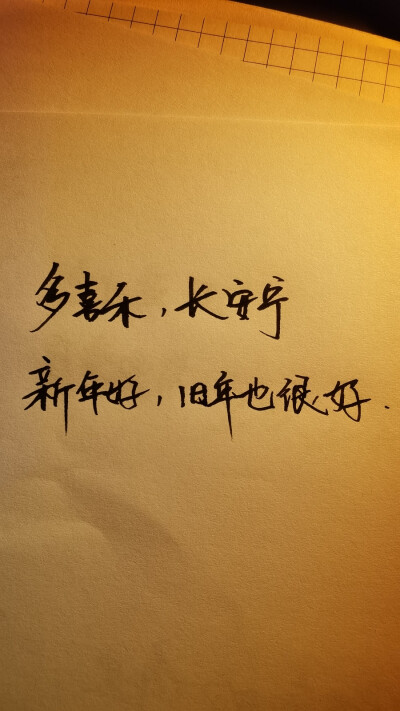 多喜乐,长安宁
新年好,旧年也很好.